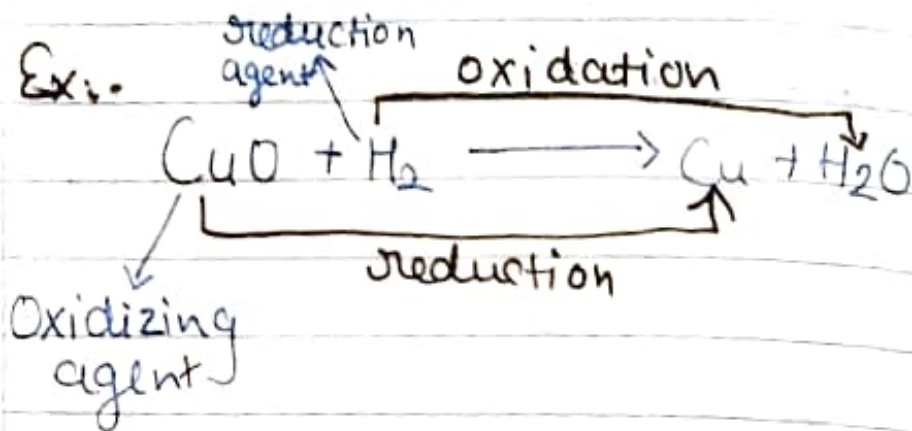 reduction
agent
Ex:- oxidation
CuO + H₂ ⟶ Cu + H₂O
reduction
Oxidizing
agent